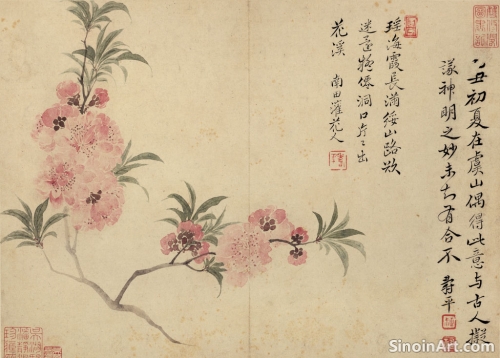 丑初夏在虞山偶得此意与古人擬
議神明之妙未知有合不 壽平
瑶海霞長滿綏山路欲
迷 僊洞口片〻出
花溪 南田灌花人
SinoinArt.com